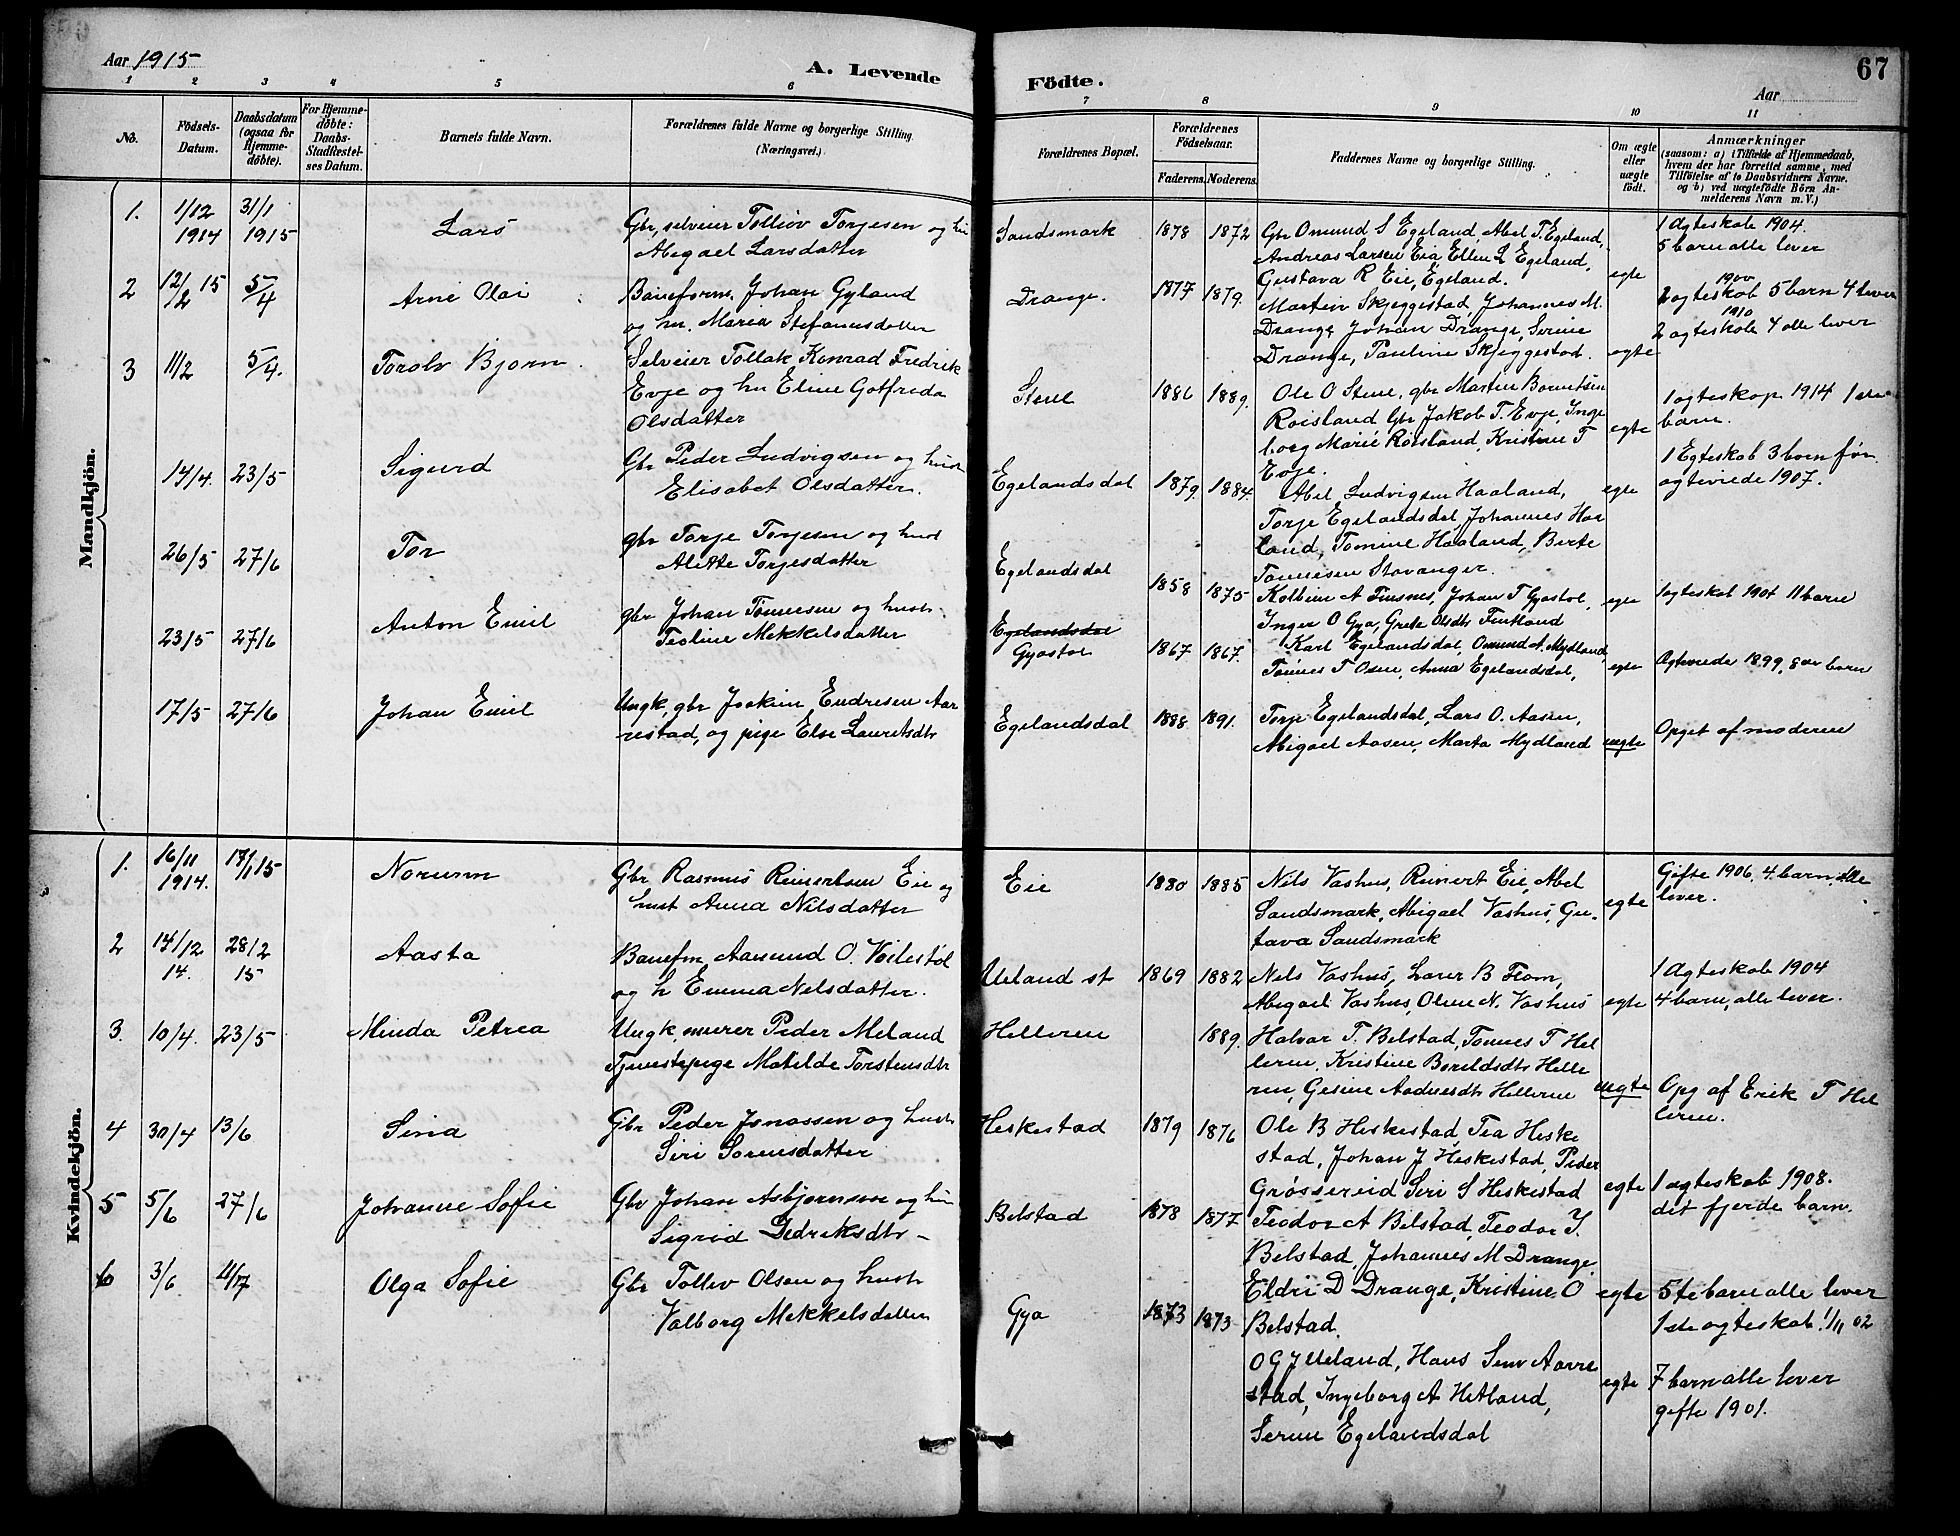 Aar 1915
A. Levende Födte.
67
Aar
1 2 3 4 5 6 7 8 9 10 11
No.
Födsels-Datum.
Daabsdatum (ogsaa for Hjemme-döbte).
For Hjemme-döbte: Daabs-Stadfæstel-ses Datum.
Barnets fulde Navn.
Forældrenes fulde Navne og borgerlige Stilling. (Næringsvei.)
Forældrenes Bopæl.
Forældrenes Födselsaar.
Faderens. Moderens.
Faddernes Navne og borgerlige Stilling.
Om ægte eller uægte födt.
Anmærkninger
(saasom: a) i Tilfælde af Hjemmedaab,
hvem der har forrettet samme, med
Tilföielse af to Daabsvidners Navne.
og b) ved uægtefödte Börn An-
melderens Navn m. V.)
Mandkjön.
1. 1/12 1914 31/1 1915 Lars
Gbr, selveier Tolliov Torjesen og hu
Abigael Larsdatter
Sandsmark 1878 1872
Gbr Omund S Egeland, Abel T. Egeland,
Andreas Larsen Eia, Ellen L Egeland,
Gustava R Eie, Egeland.
egte
1 Ægteskab 1904.
5 barn alle lever
2 12/2 15 5/4 Arne Olai
Baneform. Johan Gyland
og hu. Maria Stefanusdatter
Drange. 1877 1879.
Martin Skjeggestad, Johannes M.
Drange, Johan Drange, Serine
Drange, Pauline Skjeggestad.
egte
1900
2 ogteskab 5 barn 4 lever
1910
2 ogteskab 4 alle lever
3 11/2 5/4. Torolv Bjorn
Selveier Tollak Konrad Fredrik
Evje og hu Eline Gotfreda
Olsdatter
Stene 1886 1889.
Ole O Stene, gbr Martin Berntsen
Roisland Gbr Jakob T. Evje, Inge
borg Marie Röisland, Kristine T
Evje.
egte
1 ogteskap 1914 1ste
barn.
14/4. 23/5 Sigurd
Gbr Peder Ludvigsen og hust
Elisabet Olsdatter.
Egelandsdal 1879 1884.
Abel Ludvigsen Haaland,
Torje Egelandsdal, Johannes Haa
land, Tomine Haaland, Berte
Tonnesen Stavanger.
egte
1 Egteskab 3 barn før.
ogteviede 1907.
26/5 27/6 Tor
gbr Torje Torjesen og hust
Alette Torjesdatter
Egelandsdal 1858 1875
Kolbine A Finsnes, Johan T Gyastol,
Inger O Gya, Grete Olsdtr Fintland
egte
1 ogteskab 1901 11 barn
23/5 27/6 Anton Emil
gbr Johan Tönnesen og hust
Teoline Mekkelsdatter
Egelandsdal
Gyastol 1867 1867.
Karl Egelandsdal, Omund A. Mydland,
Tönnes T Osen, Anna Egelandsdal,
egte
Ogteviede 1899, 8de barn
17/5 27/6 Johan Emil
Ungk, gbr Joakim Endresen Aar
restad, og pige Else Lauritsdtr
Egelandsdal 1888 1891.
Torje Egelandsdal, Lars O. Aasen,
Abigael Aasen, Marta Mydland
uegte
Opget af moderen
Kvindekjön.
1. 16/11 1914. 17/1 15 Norunn
Gbr Rasmus Reinertsen Eie og
hust Anna Nilsdatter
Eie 1880 1885
Nils Vashus, Reinert Eie, Abel
Sandsmark, Abigael Vashus, Gu
tava Sandsmark
egte
Gifte 1906. 4. barn, alle
lever.
2 14/12 14. 28/2 15 Aasta
Banefm Aamund O. Veilestöl
og h Emma Nelsdatter.
Ueland st 1869 1882
Nels Vashus, Larer B Flom,
Abigael Vashus, Oline N. Vashus
egte
1 Ægteskab 1904
4 barn, alle lever.
3. 10/4. 23/5 Minda Petrea
Ungk, murer Peder Meland
Tjenestepige Matilde Torstensdtr
Helleren 1889.
Halvar T. Belstad, Tonnes T Hel
leren, Kristine Bereldsdtr Helle
ren, Gesine Aadnesdtr Helleren
uegte
Opg af Erik T Hel
leren.
4 30/4 13/6 Sina
Gbr Peder Jonassen og hust
Siri Sorensdatter
Heskestad 1879 1876
Ole B Heskestad, Tea Heske
stad, Johan J Heskestad, Peder
Grøssereid Siri S Heskestad
egte
1 ogteskab 1908.
det fjerde barn.
5 5/6 27/6 Johanne Sofie
Gbr Johan Asbjornsen og hu
Sigrid Didriksdtr -
Belstad 1878 1877
Teodor A Belstad, Teodor J.
Belstad, Johannes M Drange,
Eldri D Drange, Kristine O
Belstad.
egte
5te barn alle lever
1ste ogteskab 1/11 02
6 3/6. 11/7 Olga Sofie
Gbr Tollev Olsen og hust
Valborg Mekkelsdatter
Gya 1873 1873
O G J Ueland, Hans Sem Aarre
stad, Ingeborg A Hetland,
Serine Egelandsdal
egte
7 barn alle lever
gifte 1901.